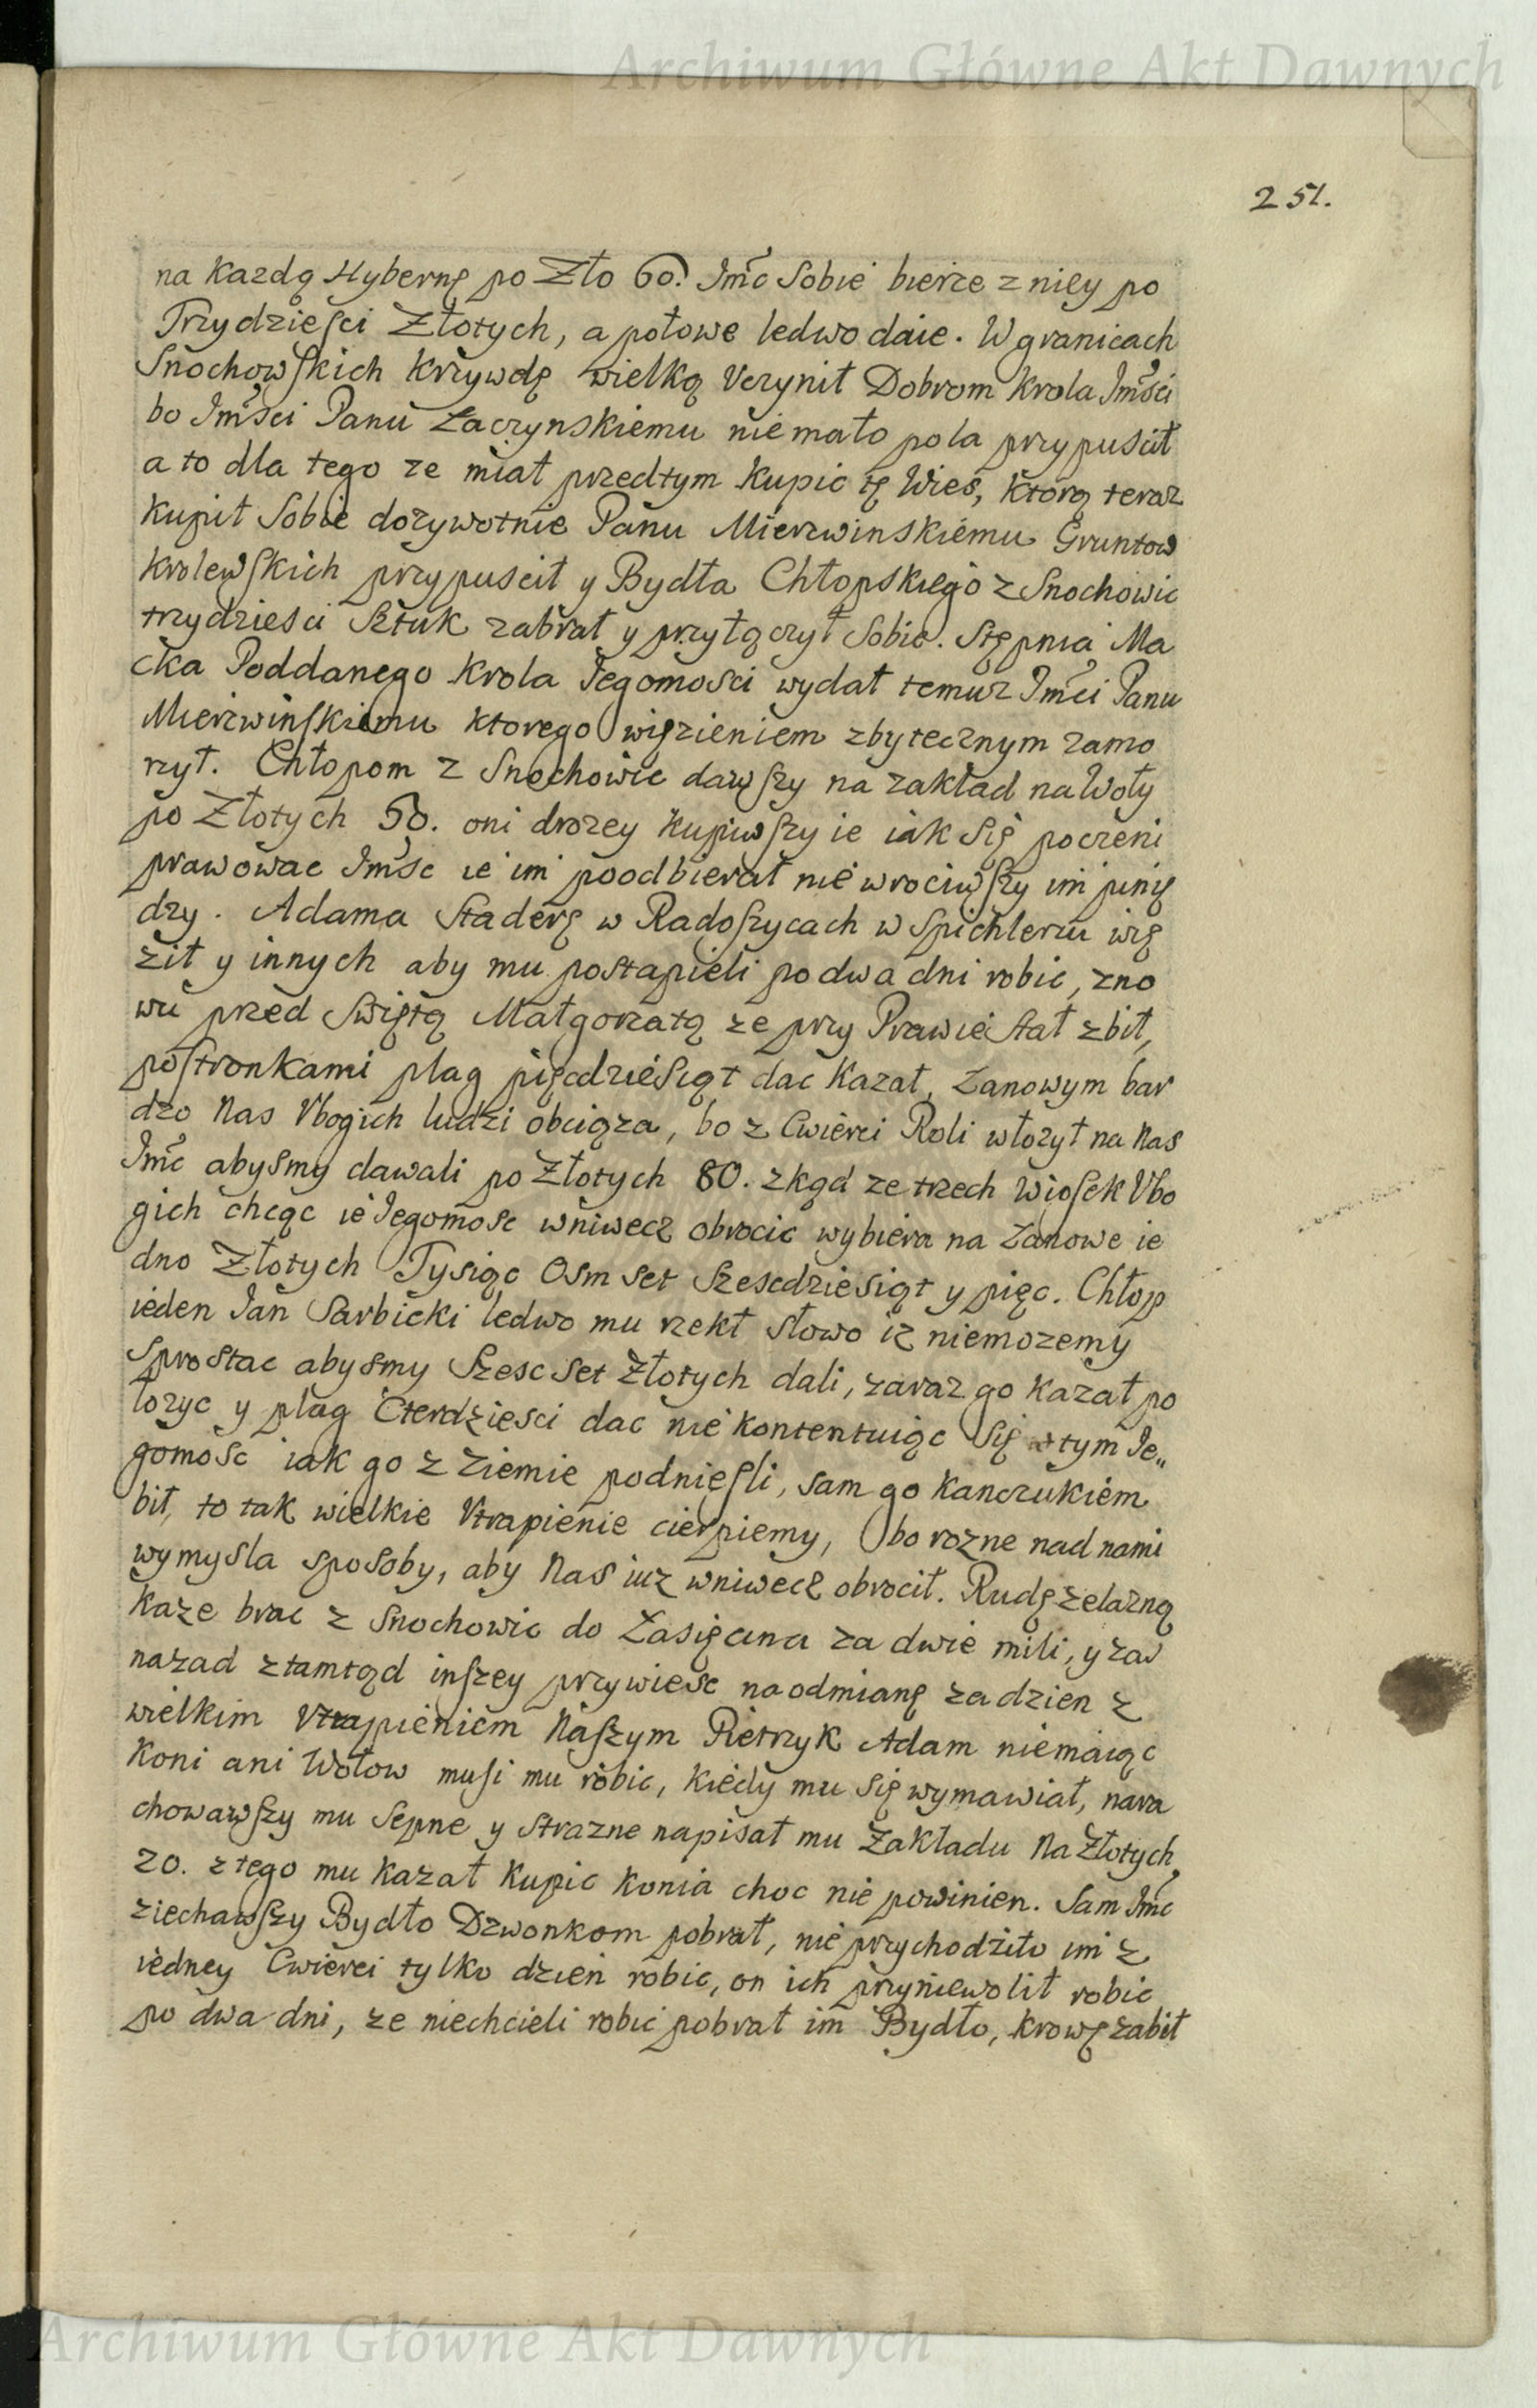 Archiwum Główne Akt Dawnych
251.
na Kazdą Hybernę po Zło 60. Jmc Sobie bierze z niey po
Trzydziesci Złotych, a połowe ledwo daie. W granicach
Snochowskich Krzywdę wielką Vczynił Dobrom Krola Jmsci
bo Jmsci Panu Łaczynskiemu nie mało pola przypuscił
a to dla tego ze miał przedtym Kupic tę Wies, Ktorą teraz
Kupił Sobie dozywotnie Panu Mierzwinskiemu Gruntow
Krolewskich przypuscił y Bydła Chłopskiego z Snochowic
trzydziesci Sztuk zabrał y przyłączył Sobie. Stępnia Ma
cka Poddanego Krola Jegomosci wydał temuz Jmci Panu
Mierzwinskiemu Ktorego więzieniem zbytecznym zamo
rzył. Chłopom z Snochowic dawszy na zakład na Woły
po Złotych 50. oni drozey Kupiwszy ie iak Się poczeni
prawowac Jmsc ie im poodbierał nie wrociwszy im pinię
dzy. Adama Staderę w Radoszycach w Spichlerzu wię
ził y innych aby mu postapieli po dwa dni robic, zno
wu przed Swiętą Małgorzatą ze przy Prawie stał zbił,
postronkami plag pięcdziesiąt dac Kazał, Zanowym bar
dzo Nas Vbogich ludzi obciąza, bo z Cwierci Roli włozył na Nas
Jmc abysmy dawali po Złotych 80. zkąd ze trzech Wiosek Vbo
gich chcąc ie Jegomosc wniwecz obrocic wybiera na Zanowe ie
dno Złotych Tysiąc Osm set Szescdziesiąt y pięc. Chłop
ieden Jan Sarbicki ledwo mu rzekł słowo iz niemozemy
Sprostac abysmy Szesc set Złotych dali, zaraz go Kazał po
łozyc y plag Cterdziesci dac nie Kontentuiąc Się tym Je„
gomosc iak go z Ziemie podniesli, sam go Kanczukiem
bił, to tak wielkie Vtrapienie cierpiemy, bo rozne nad nami
wymysla sposoby, aby Nas iuz wniwecz obrocił. Rudę zelazną
Kaze brac z Snochowic do Zasięcina za dwie mili, y zas
nazad ztamtąd inszey przywiesc na odmianę za dzien z
wielkim Vtrapieniem Naszym Pietrzyk Adam niemaiąc
Koni ani Wołow musi mu robic, Kiedy mu Się wymawiał, nara
chowawszy mu Sepne y Strazne napisał mu Zakładu Na Złotych
20. z tego mu Kazał Kupic Konia choc nie powinien. Sam Jmc
ziechawszy Bydło Dzwonkom pobrał, nie przychodziło im z
iedney Cwierci tylko dzien robic, on ich przyniewolił robic
po dwa dni, ze niechcieli robic pobrał im Bydło, Krowę zabił
Archiwum Główne Akt Dawnych